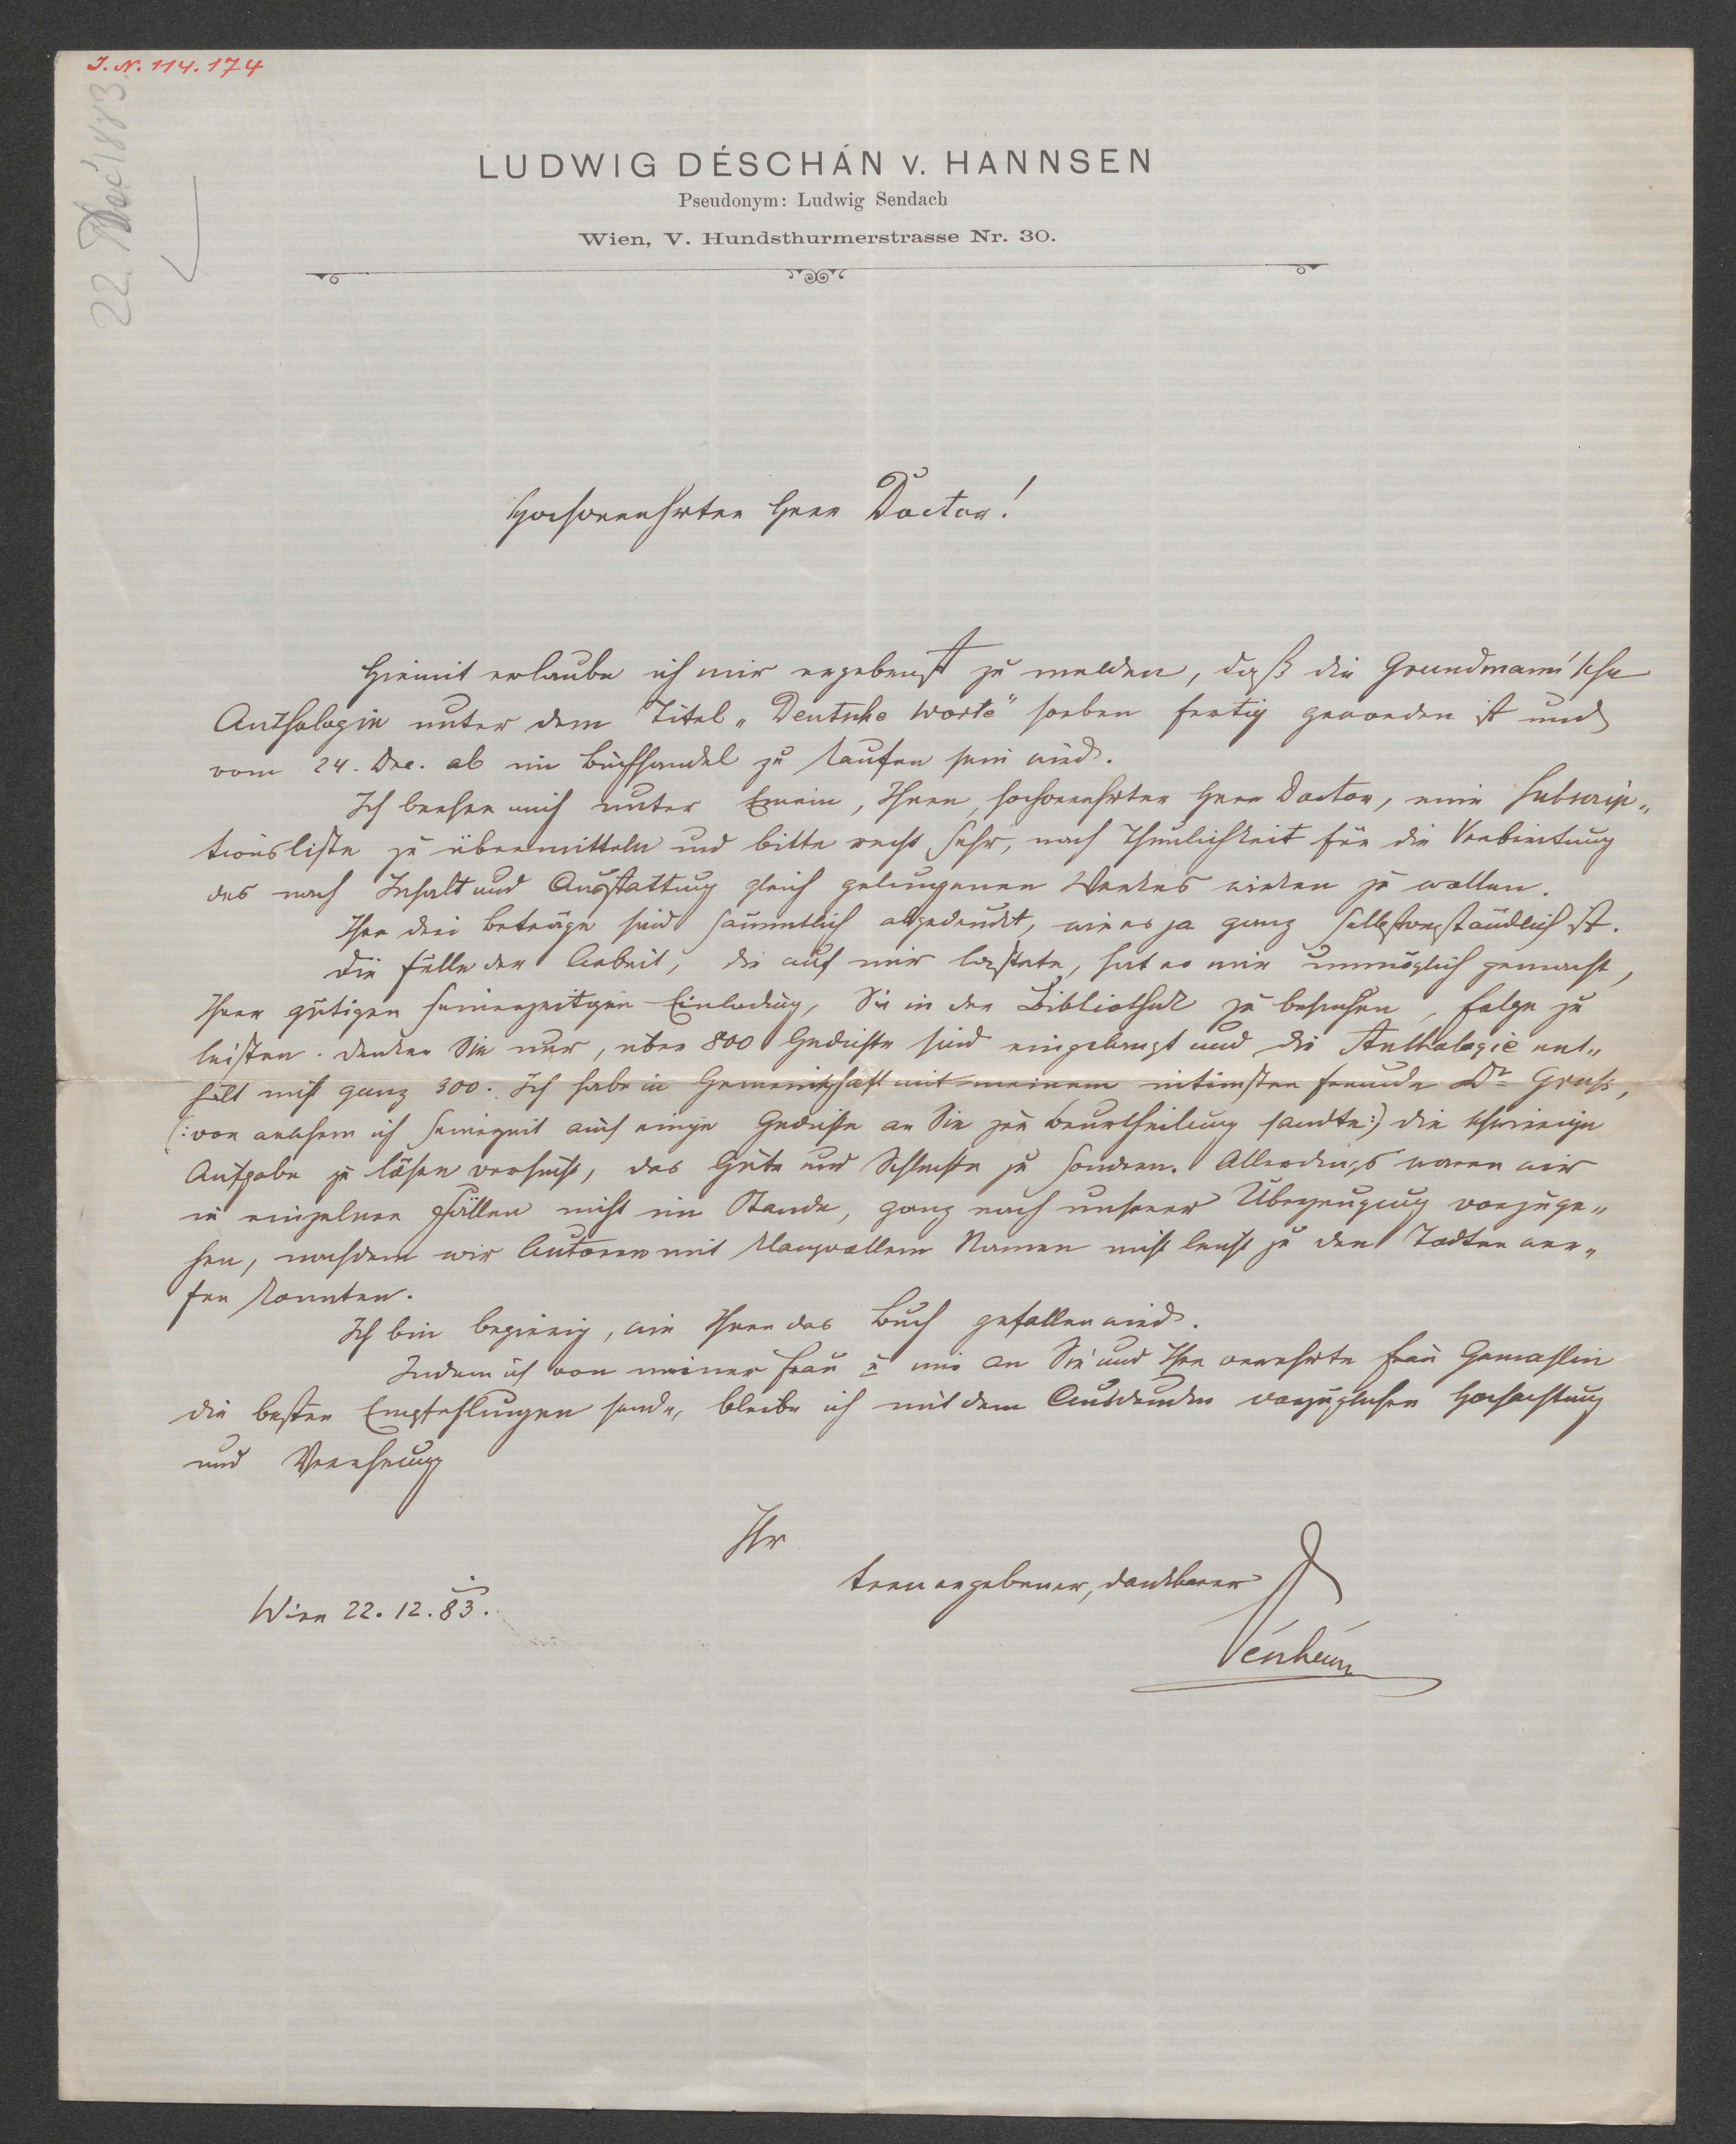 J. N. 114.174
22. Dec 1883.
LUDWIG DÉSCHÁN v. HANNSEN
Pseudonym: Ludwig Sendach
Wien, V. Hundsthurmerstrasse Nr. 30.
Hochverehrter Herr Doctor!
Hiemit erlaube ich mir ergebenst zu melden, daß die Grundmann'sche
Anthologie unter dem Titel „Deutsche Worte" soeben fertig geworden ist und
vom 24. Dec. ab im Buchhandel zu kaufen sein wird.
Ich beehre mich unter Einem, Ihnen, hochverehrter Herr Doctor, eine Subscrip„
tionsliste zu übermitteln und bitte recht sehr, nach Thunlichkeit für die Verbreitung
des nach Inhalt und Ausstattung gleich gelungenen Werkes wirken zu wollen.
Ihre drei Beträge sind sämmtlich abgedruckt, wie es ja ganz selbstverständlich ist.
Die Fülle der Arbeit, die auf mir lastete, hat es mir unmöglich gemacht,
Ihrer gütigen seinerzeitigen Einladung, Sie in der Bibliothek zu besuchen, Folge zu
leisten. Denken Sie nur, über 800 Gedichte sind eingelangt und die Anthologie ent„
hält nicht ganz 300. Ich habe in Gemeinschaft mit meinem intimsten Freunde Dr Groß,
(: von welchem ich seinerzeit auch einige Gedichte an Sie zur Beurtheilung sandte :) die schwierige
Aufgabe zu lösen versucht, das Gute und Schlechte zu sondern. Allerdings waren wir
in einzelnen Fällen nicht im Stande, ganz nach unserer Überzeugung vorzuge„
hen, nachdem wir Autoren mit klangvollem Namen nicht leicht zu den Todten wer„
fen konnten.
Ich bin begierig, wie Ihnen das Buch gefallen wird.
Indem ich von meiner Frau u mir an Sie und Ihre verehrte Frau Gemahlin
die besten Empfehlungen sende, bleibe ich mit dem Ausdrucke vorzüglicher Hochachtung
und Verehrung
Ihr
treu ergebener, dankbarer
Wien 22. 12. 83.